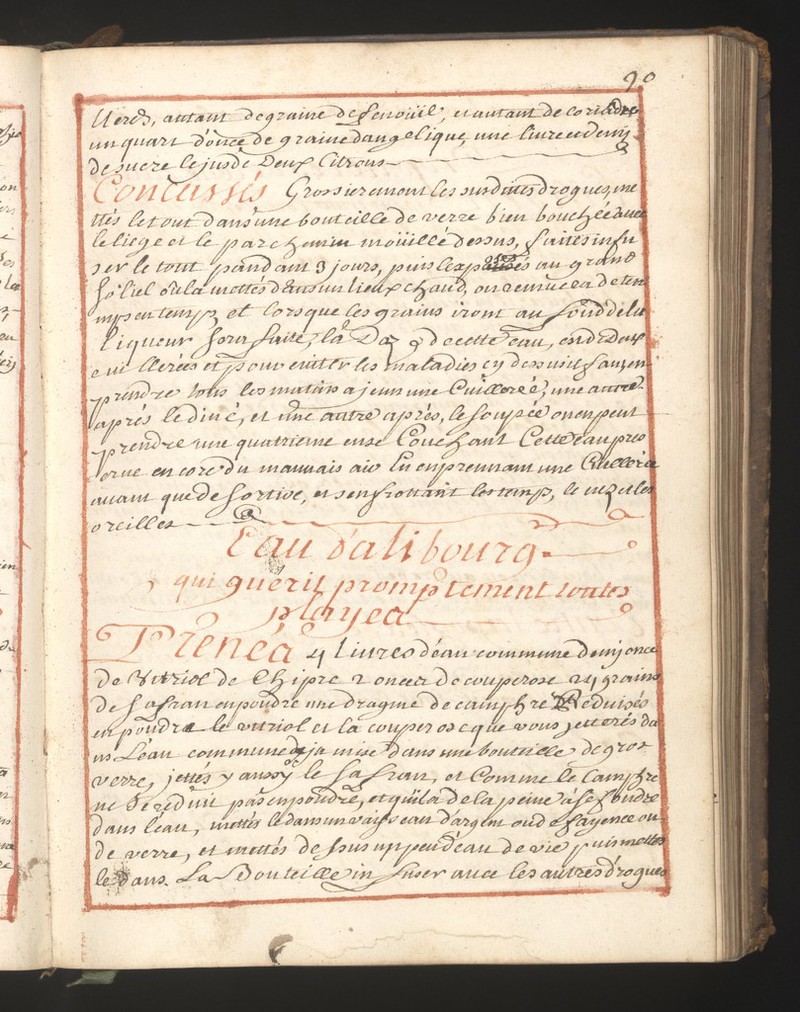 90
Verds, autant de graine de fenoüil, et autant de coriandre
un quart d'once de graine dangelique, une livre et demy
de sucre le jus de Deux Citrons
Concassés Grossierement les susdittes drogues, me
ttés le tout dans une bouteille de verre bien bouchée avec
le liege et le parchemin moüillé dessus, faites infu
ser le tout pandant 3 jours, puis au grand
soliel où la mettés dans un lieux chaud, on remuera de ten
mps en temps, et lorsque les grains iront au fond de la
liqueur sera faite, la de cette eau, est de Deux
cuillerées et pour eviter les maladies cy dessus il faut en
prendre tous les matins a jeun une Cuillereé, une autre
aprés le diné, et une autre aprés, le soupée on en peut
prendre une quatrieme en se Couchant Cette eau pres
erve encore du mauvais air En en prennant une Cuillerée
avant que de sortire, et s'en frottant les temps, le nez et les
oreilles
Eau d'alibourg
qui guerit promptement toutes
playea
Prenéa 4 livres d'eau commune demy once
de Vitriol de Chipre 2 oncea de couperose 24 grains
de safran en poudre une dragme de camphre Reduisés
en poudre le vitriol et la couperose que vous jetterés da
ns L'eau commune deja mise dans une bouteille de gros
verre, jettés y aussy le safran, et Comme le Camphre
ne se reduit pas en poudre, et qu'il a de la peine a se fondre
dans l'eau, mettés le dans un vaisseau d'argent ou de fayence ou
de verre, et mettés dessus un peu d'eau de vie puis mettes
le dans La Bouteille infuser avec les autres drogues